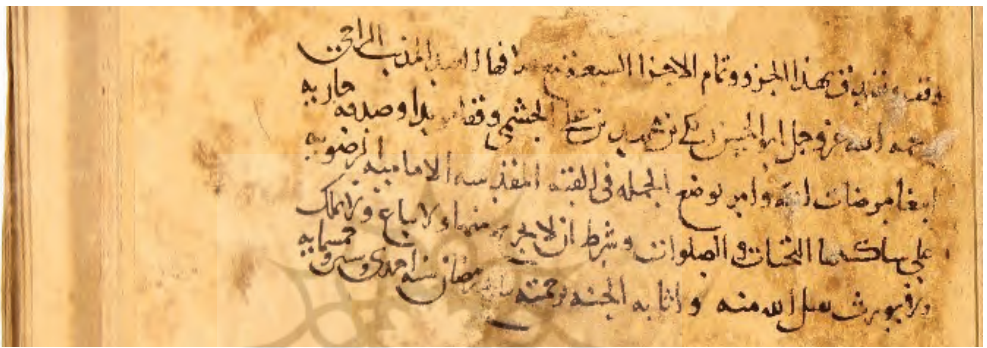 وقف وتصدق بهذا الجزو وتمام الاجزا السبعة العبد المذنب الراجى
رحمه الله عز وجل ابو الحسن بن على الجشمى وقفا موبدا وصدقه جاريه
ابتغا مرضات الله وامر بوضع الجمله فى القبه المقدسه الاماميه الرضويه
على ساكنها التحيات والصلوات وشرط ان لا يخرج منها ولا يباع ولا يملك
ولا يورث تقبل الله منه واثابه الجنه برحمته رمضان سنه احدى وستين وخمسمايه